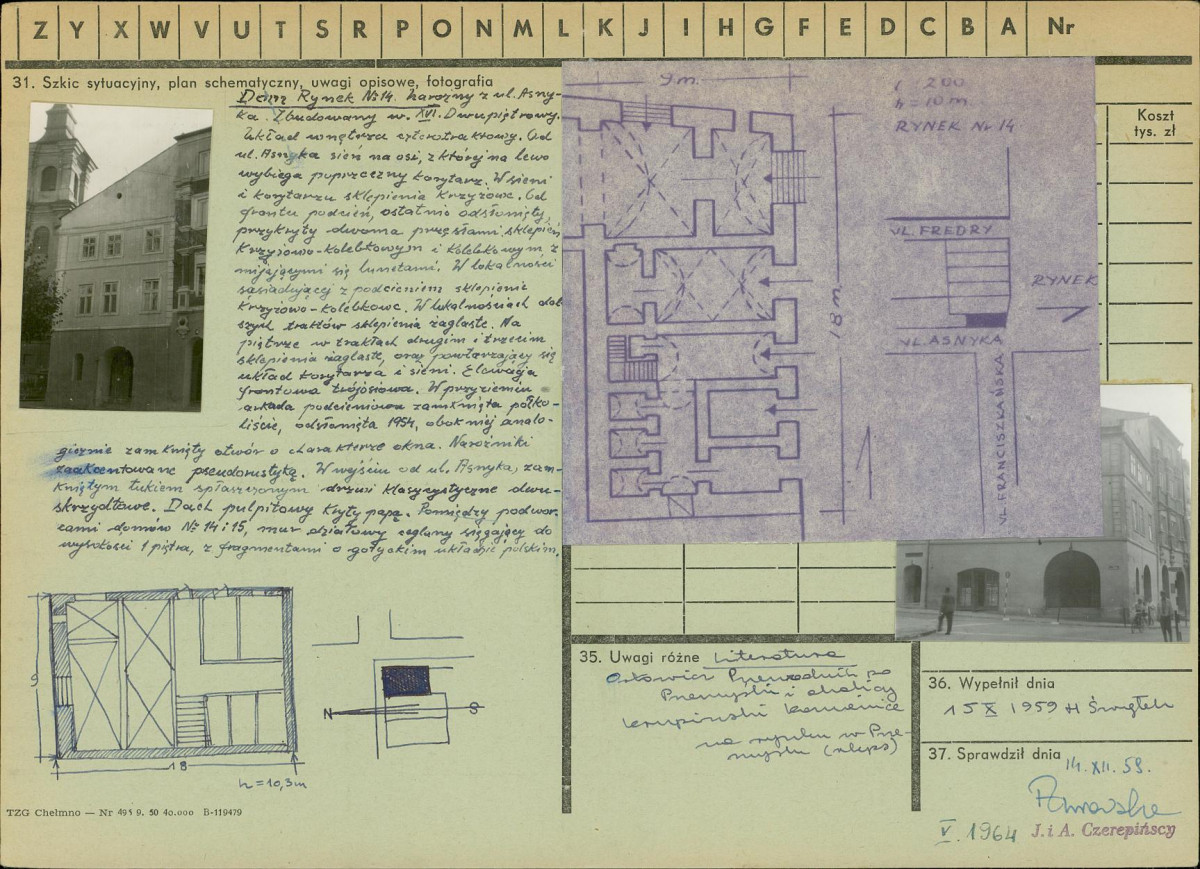 Z Y X W V U T S R P O N M L K J I H G F E D C B A Nr
31. Szkic sytuacyjny, plan schematyczny, uwagi opisowe, fotografia
Dom Rynek № 14. narożny z ul. Asny-
ka. Zbudowany w. XVI. Dwupiętrowy.
Układ wnętrza czterotraktowy. Od
ul. Asnyka sień na osi, z której na lewo
wybiega poprzeczny korytarz. W sieni
i korytarzu sklepienia krzyżowe. Od
frontu podcień, ostatnio odsłonięty,
przykryty dwoma przęsłami sklepień
krzyżowo-kolebkowym i kolebkowym z
mijającymi się lunetami. W lokalności
sąsiadującej z podcieniem sklepienie
krzyżowo-kolebkowe. W lokalnościach dal-
szych traktów sklepienia żaglaste. Na
piętrze w traktach drugim i trzecim
sklepienia żaglaste, oraz powtarzający się
układ korytarza i sieni. Elewacja
frontowa trójosiowa. W przyziemiu
arkada podcieniowa zamknięta półko-
liście, odsłonięta 1954, obok niej analo-
gicznie zamknięty otwór o charakterze okna. Narożniki
zaakcentowane pseudorustyką. W wejściu od ul. Asnyka, zam-
kniętym łukiem spłaszczonym drzwi klasycystyczne dwu-
skrzydłowe. Dach pulpitowy kryty papą. Pomiędzy podwór-
cami domów № 14 i 15, mur działowy ceglany sięgający do
wysokości 1 piętra, z fragmentami o gotyckim układzie polskim.
9
18
h = 10,3 m
N
S
TZG Chełmno — Nr 495 9. 50 40.000 B-119479
9 m.
18 m.
1 : 200
h = 10 m.
RYNEK Nr 14
UL. FREDRY
RYNEK
UL. ASNYKA
UL. FRANCISZKAŃSKA
Koszt
tys. zł
35. Uwagi różne Literatura
Orłowicz Przewodnik po
Przemyślu i okolicy
Krupiński Kamienice
na rynku w Prze-
myślu (rkps)
36. Wypełnił dnia
15 X 1959 H Świątek
37. Sprawdził dnia
14. XII. 59.
V. 1964 J. i A. Czerepińscy